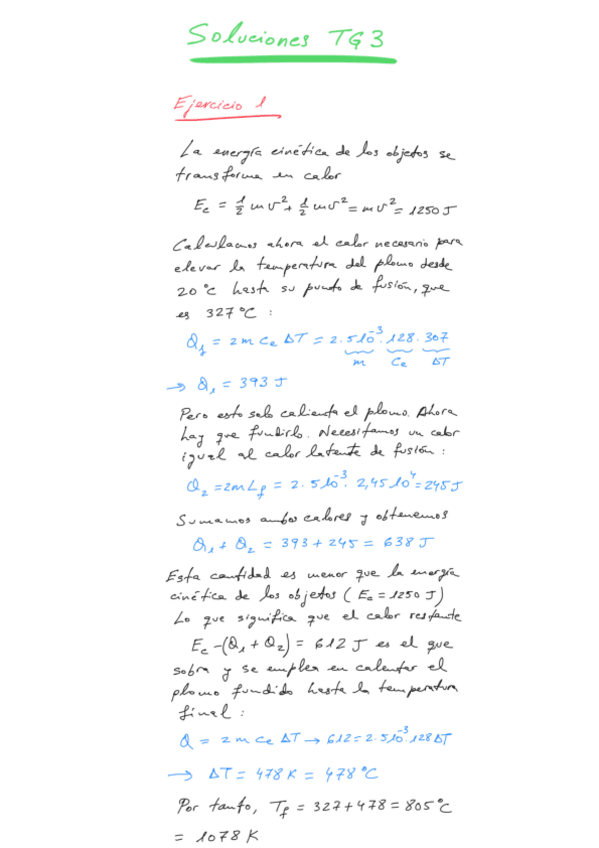 Soluciones TG3
Ejercicio 1
La energía cinética de los objetos se
transforma en calor
Ec = 1/2 mv² + 1/2 mv² = mv² = 1250 J
Calculamos ahora el calor necesario para
elevar la temperatura del plomo desde
20 °C hasta su punto de fusión, que
es 327 °C :
Q₁ = 2m Ce ΔT = 2·5 10⁻³·128·307
m Ce ΔT
→ Q₁ = 393 J
Pero esto solo calienta el plomo. Ahora
hay que fundirlo. Necesitamos un calor
igual al calor latente de fusión :
Q₂ = 2mLf = 2·5 10⁻³·2,45 10⁴ = 245 J
Sumamos ambos calores y obtenemos
Q₁ + Q₂ = 393 + 245 = 638 J
Esta cantidad es menor que la energía
cinética de los objetos (Ec = 1250 J)
Lo que significa que el calor restante
Ec - (Q₁ + Q₂) = 612 J es el que
sobra y se emplea en calentar el
plomo fundido hasta la temperatura
final :
Q = 2 m Ce ΔT → 612 = 2·5 10⁻³·128 ΔT
→ ΔT = 478 K = 478 °C
Por tanto, Tf = 327 + 478 = 805 °C
= 1078 K